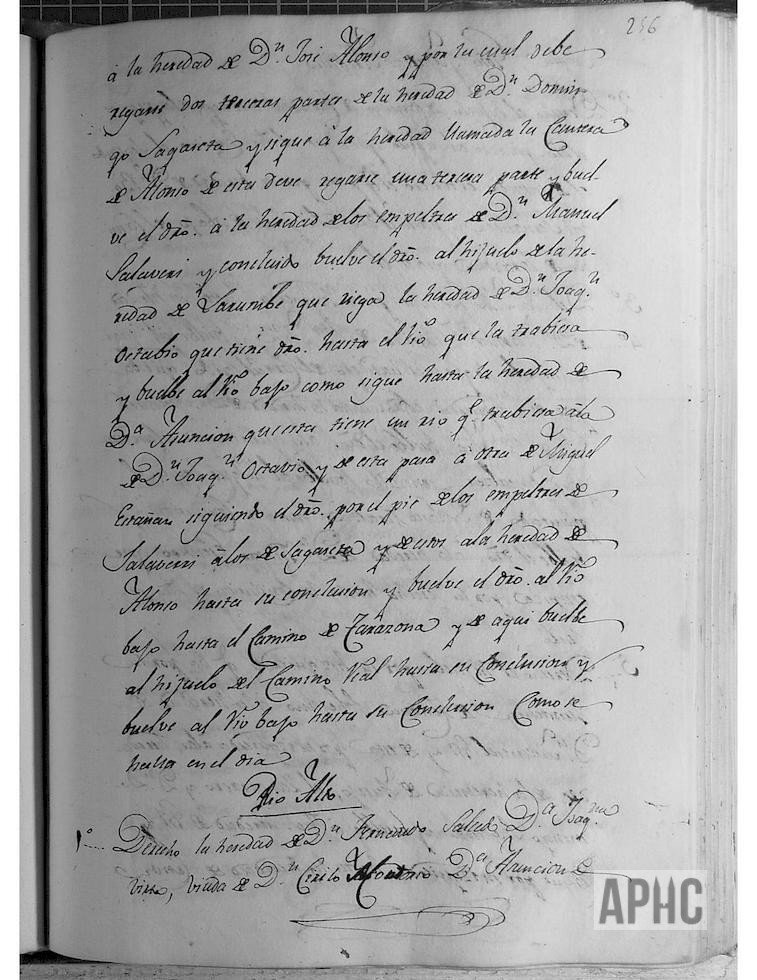 256
à la heredad de Dn. José Alonso y por la cual debe
regarse dos terceras partes de la heredad de Dn. Domin-
go Sagaseta y sigue à la heredad llamada la Cantera
de Alonso de esta deve regarse una tercera parte y buel
ve el dro. à la heredad de los empeltres de Dn. Manuel
Salaveri y concluido buelve el dro. al hijuelo de la he-
redad de Sarumbe que riega la heredad de Dn. Joaqn.
Octabio que tiene dro. hasta el rio que la trabiesa
y buelbe al Rio bajo como sigue hasta la heredad de
Da. Asuncion que esta tiene un rio qe. trabiesa à la
de Dn. Joaqn. Octavio y de esta pasa à otra de Miguel
Estañan siguiendo el dro. por el pie de los empeltres de
Salaverri à los de Sagaseta y de estos a la heredad de
Alonso hasta su conclusion y buelve el dro. al Rio
bajo hasta el Camino de Tarazona y de aqui buelbe
al hijuelo del Camino Real hasta su Conclusion y
buelve al Rio bajo hasta su Conclusion Como se
halla en el dia
Rio Alto
1o. Derecho la heredad de Dn. Fernando Salcedo Da. Joaqna.
viuda de Dn. Cirilo Da. Asuncion
APHC